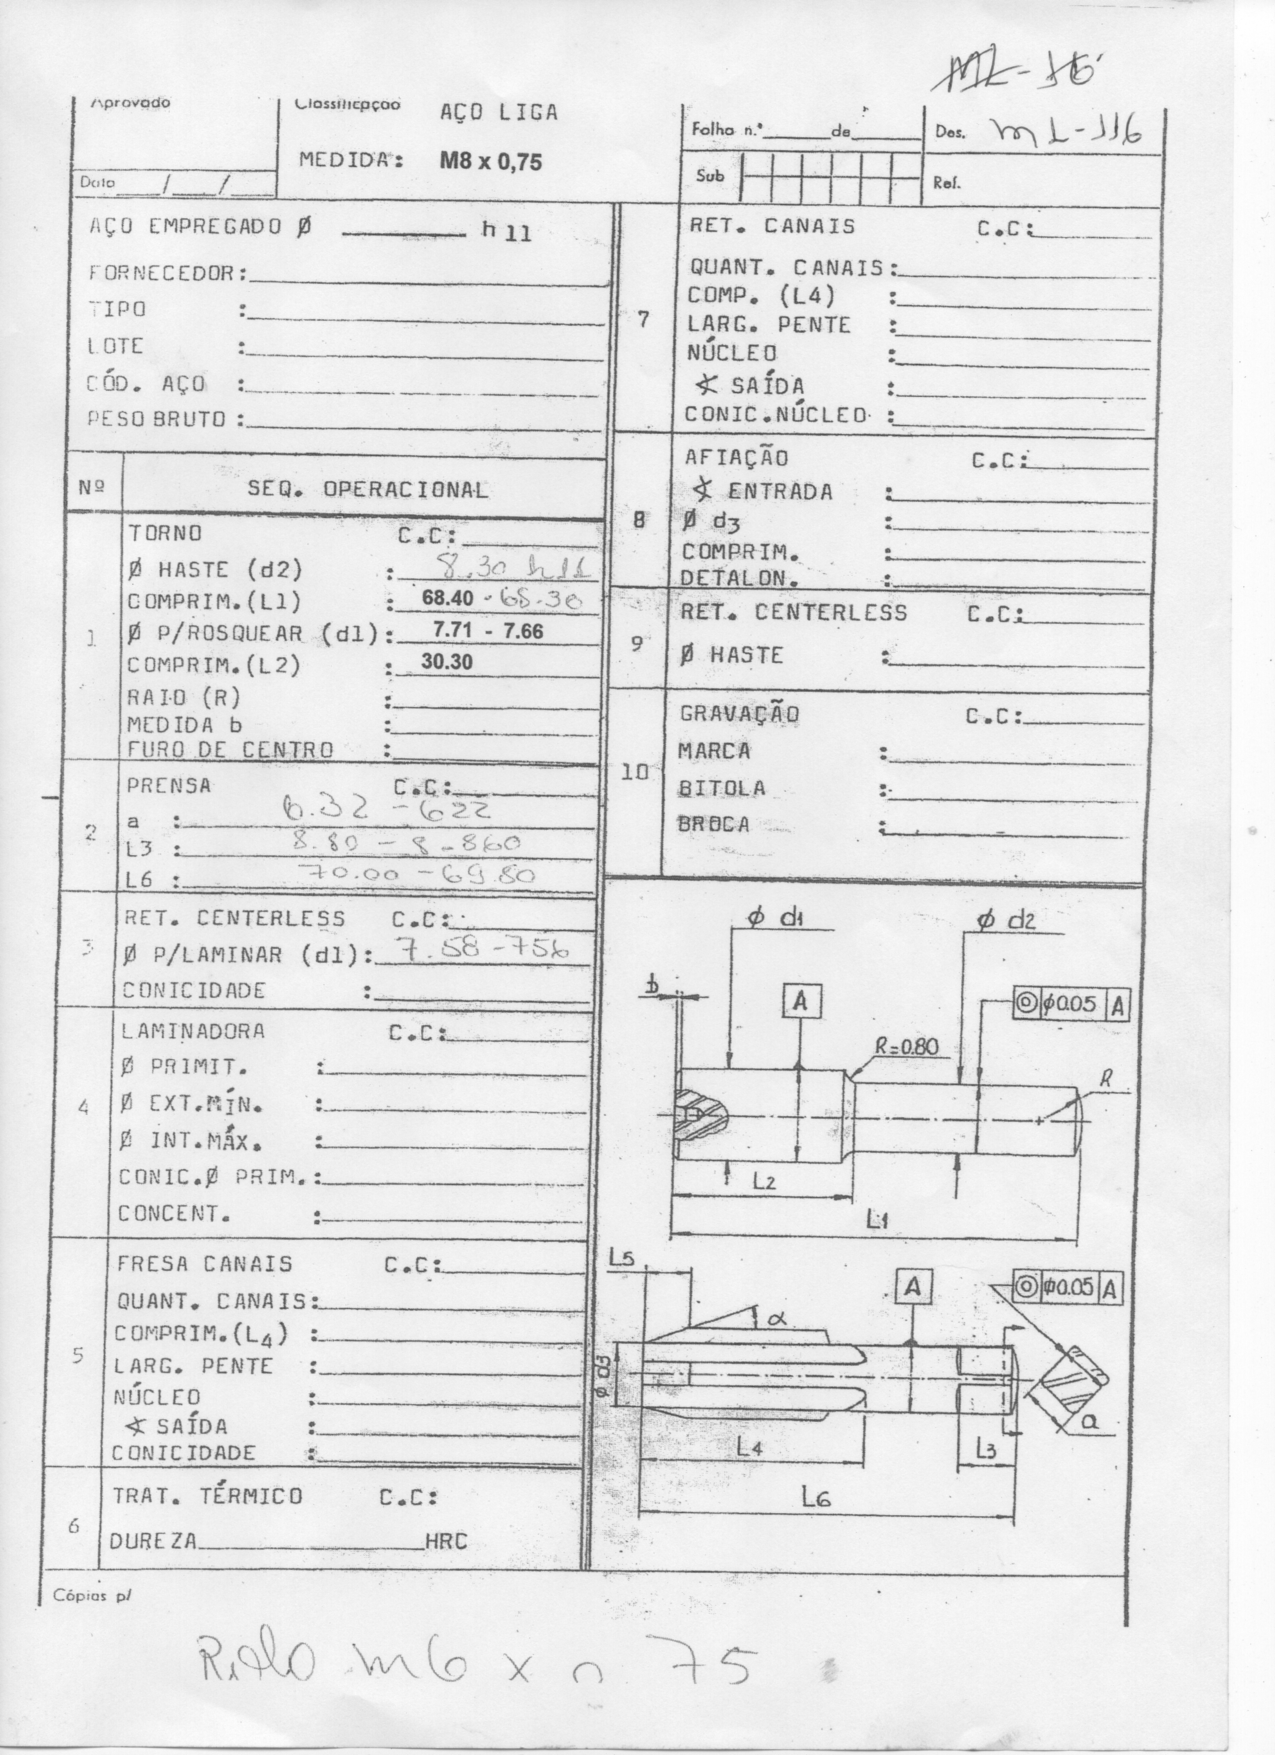 ML-16
Aprovado
Classificação AÇO LIGA
MEDIDA: M8 x 0,75
Data ___/___/___
Folha n.º ______ de ______
Des. ML-116
Sub
Ref.
AÇO EMPREGADO Ø ________ h11
FORNECEDOR:
TIPO :
LOTE :
CÓD. AÇO :
PESO BRUTO :
Nº SEQ. OPERACIONAL
1
TORNO C.C:
Ø HASTE (d2) : 8.30 h11
COMPRIM.(L1) : 68.40 - 68.30
Ø P/ROSQUEAR (d1): 7.71 - 7.66
COMPRIM.(L2) : 30.30
RAIO (R) :
MEDIDA b :
FURO DE CENTRO :
2
PRENSA C.C:
a : 6.32 - 622
L3 : 8.80 - 8.860
L6 : 70.00 - 69.80
3
RET. CENTERLESS C.C:
Ø P/LAMINAR (d1): 7.58 - 756
CONICIDADE :
4
LAMINADORA C.C:
Ø PRIMIT. :
Ø EXT.MÍN. :
Ø INT.MÁX. :
CONIC.Ø PRIM.:
CONCENT. :
5
FRESA CANAIS C.C:
QUANT. CANAIS:
COMPRIM.(L4) :
LARG. PENTE :
NÚCLEO :
∢ SAÍDA :
CONICIDADE :
6
TRAT. TÉRMICO C.C:
DUREZA ________ HRC
7
RET. CANAIS C.C:
QUANT. CANAIS:
COMP. (L4) :
LARG. PENTE :
NÚCLEO :
∢ SAÍDA :
CONIC.NÚCLEO :
8
AFIAÇÃO C.C:
∢ ENTRADA :
Ø d3 :
COMPRIM. :
DETALON. :
9
RET. CENTERLESS C.C:
Ø HASTE :
10
GRAVAÇÃO C.C:
MARCA :
BITOLA :
BROCA :
Ø d1
Ø d2
b
A
◎ Ø0.05 A
R=0.80
R
L2
L1
L5
A
◎ Ø0.05 A
α
Ø d3
a
L4
L3
L6
Cópias p/
m6 x 0 75